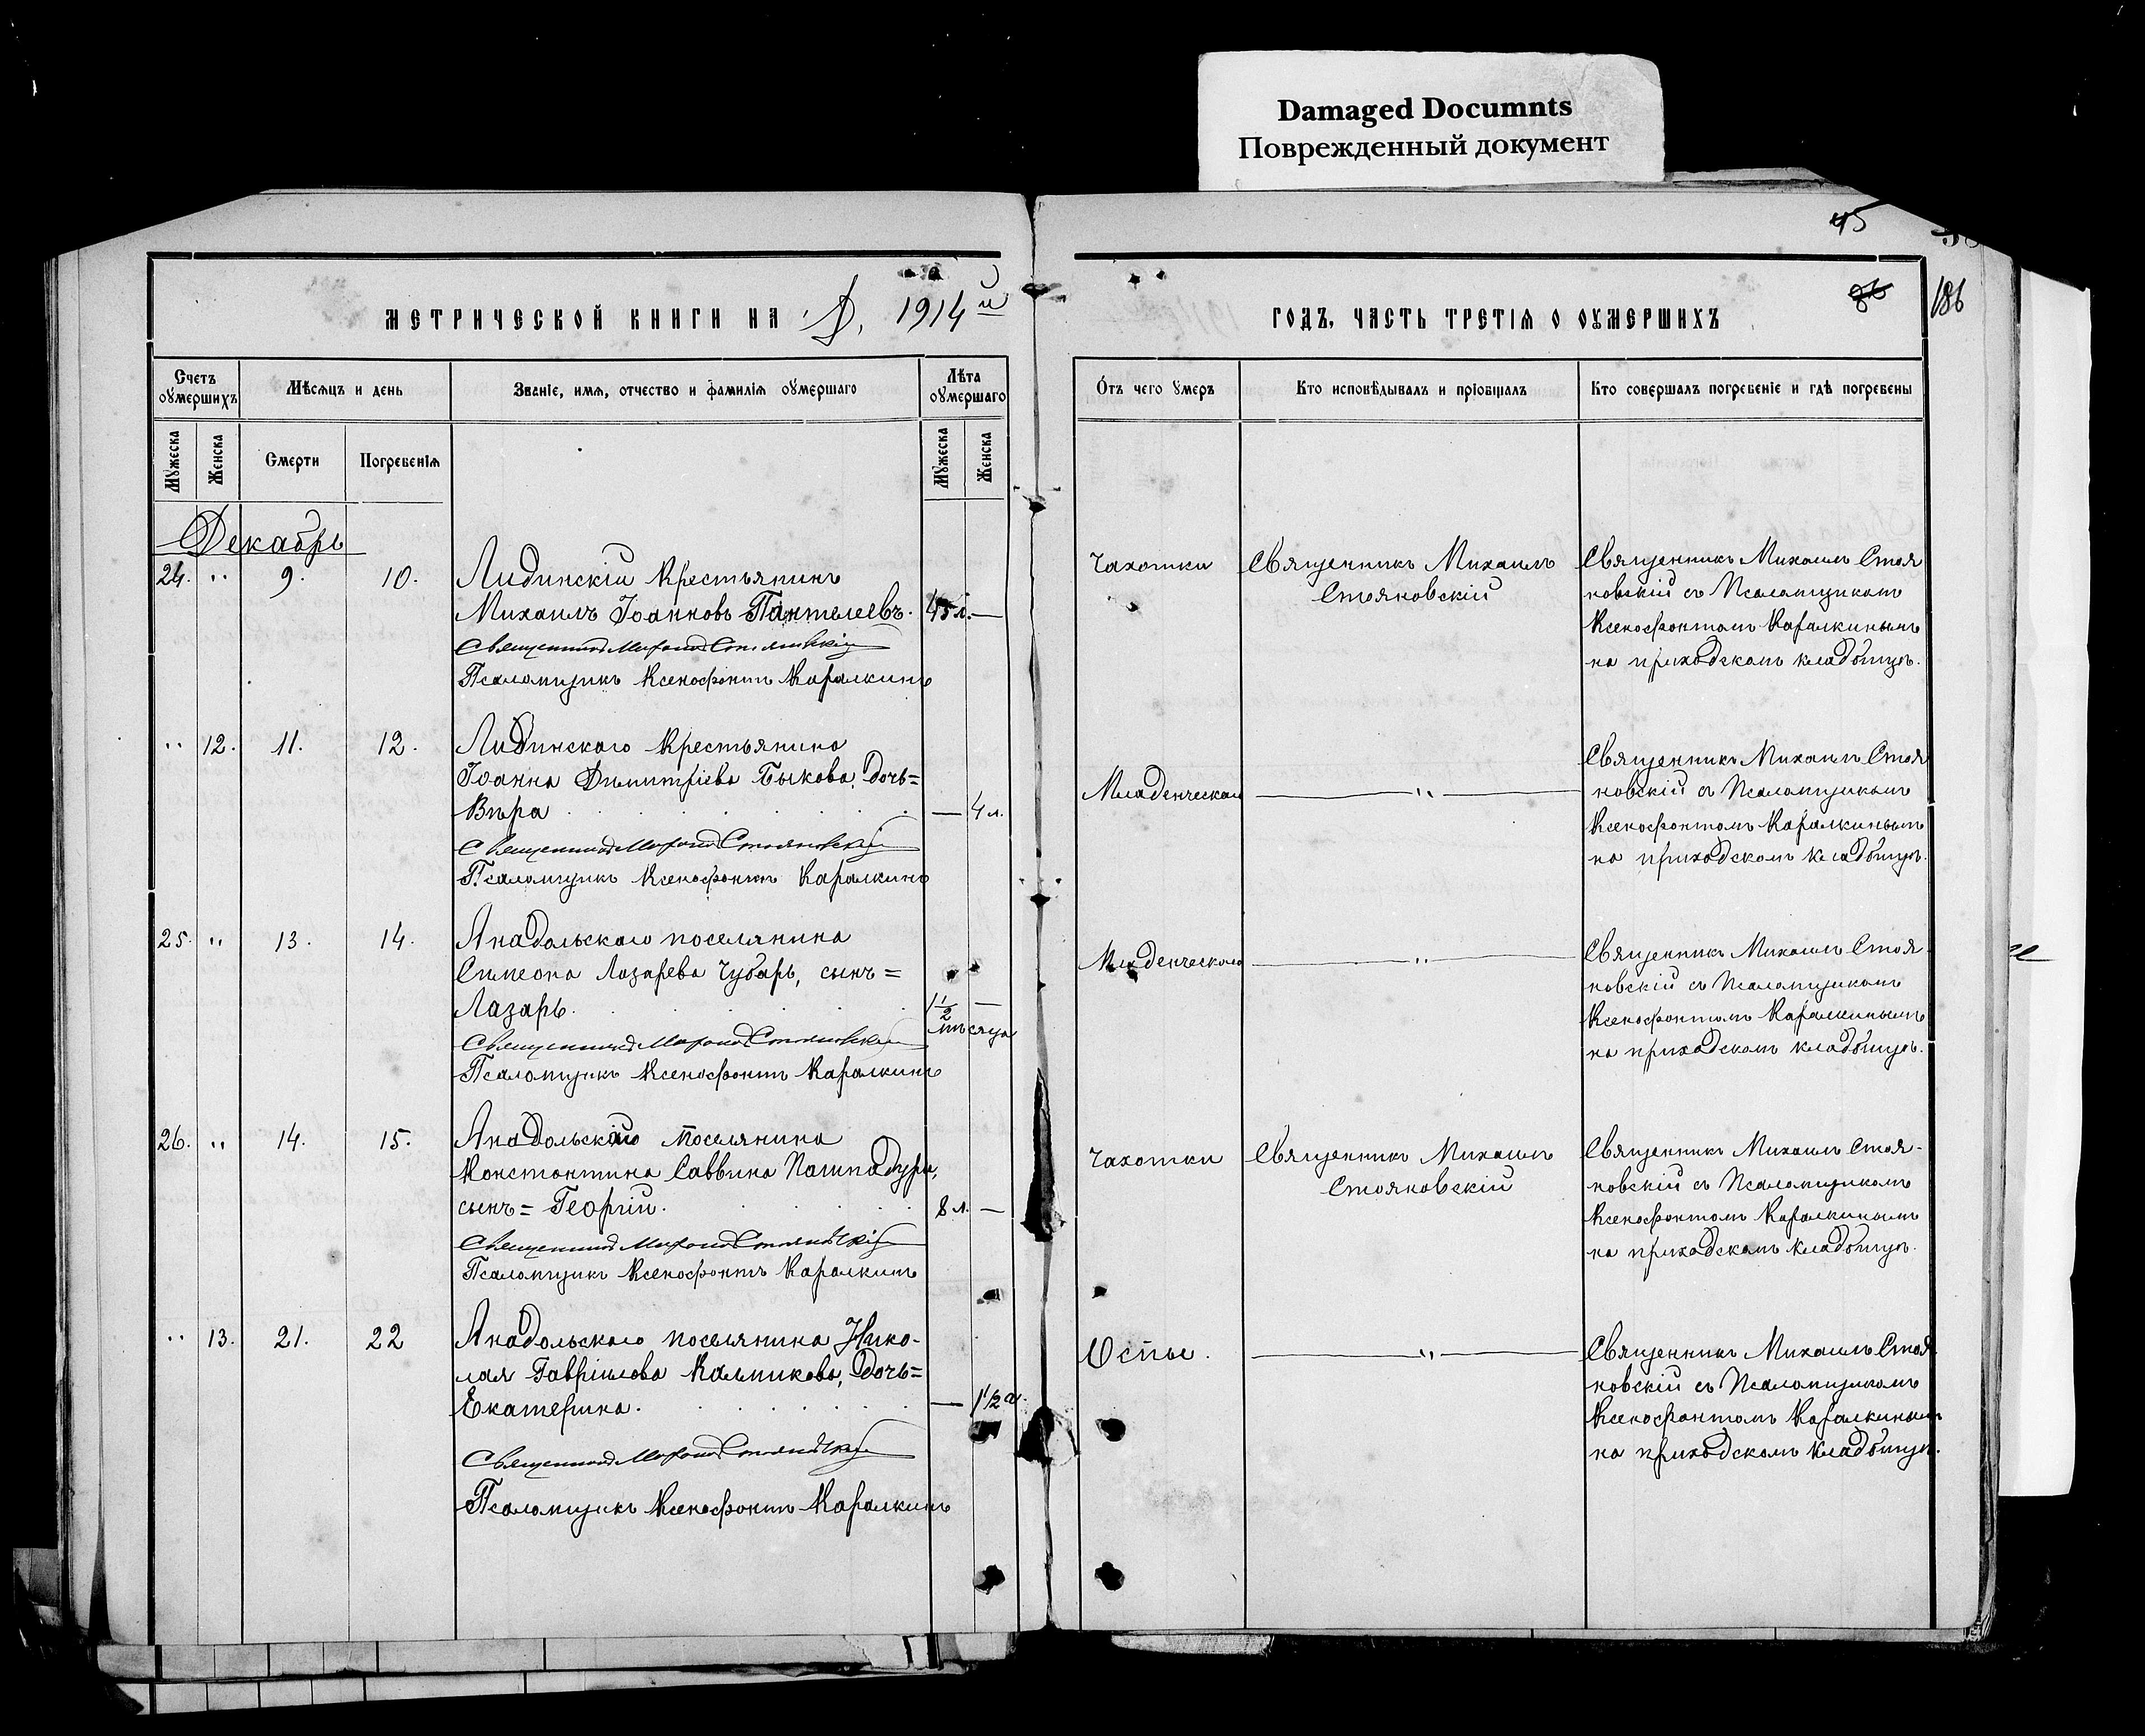 Damaged Documnts
Поврежденный документ
45
186
МЕТРИЧЕСКОЙ КНИГИ НА 1914й
ГОДЪ, ЧАСТЬ ТРЕТІЯ О ОУМЕРШИХЪ
Счетъ оумершихъ
Мѣсяцъ и день
Званіе, имя, отчество и фамилія оумершаго
Лѣта оумершаго
Отъ чего умеръ
Кто исповѣдывалъ и пріобщалъ
Кто совершалъ погребеніе и гдѣ погребены
Мужеска
Женска
Смерти
Погребенія
Мужеска
Женска
Декабрь
24. " 9. 10. Лидинскій крестьянинъ
Михаилъ Іоанновъ Пантелеевъ. 45 л. —
Священникъ Михаилъ Стояновскій
Псаломщикъ Ксенофонтъ Каралкинъ
Чахотки
Священникъ Михаилъ
Стояновскій
Священникъ Михаилъ Стоя
новскій съ Псаломщикомъ
Ксенофонтомъ Каралкинымъ
на приходскомъ кладбищѣ.
" 12. 11. 12. Лидинскаго крестьянина
Іоанна Димитріева Быкова, дочь=
Вѣра — 4 л.
Священникъ Михаилъ Стояновскій
Псаломщикъ Ксенофонтъ Каралкинъ
Младенческой — " —
Священникъ Михаилъ Стоя
новскій съ Псаломщикомъ
Ксенофонтомъ Каралкинымъ
на приходскомъ кладбищѣ.
25. " 13. 14. Анадольскаго поселянина
Симеона Лазарева Чубарь, сынъ=
Лазарь. 1 1/2 —
мѣсяца
Священникъ Михаилъ Стояновскій
Псаломщикъ Ксенофонтъ Каралкинъ
Младенческой — " —
Священникъ Михаилъ Стоя-
новскій съ Псаломщикомъ
Ксенофонтомъ Каралкинымъ
на приходскомъ кладбищѣ.
26. " 14. 15. Анадольскаго поселянина
Константина Саввина Помпадура,
сынъ= Георгій. 8 л. —
Священникъ Михаилъ Стояновскій
Псаломщикъ Ксенофонтъ Каралкинъ
Чахотки
Священникъ Михаилъ
Стояновскій
Священникъ Михаилъ Стоя-
новскій съ Псаломщикомъ
Ксенофонтомъ Каралкинымъ
на приходскомъ кладбищѣ.
" 13. 21. 22 Анадольскаго поселянина Нико-
лая Гавріилова Калмикова, дочь=
Екатерина. — 1 1/2
Священникъ Михаилъ Стояновскій
Псаломщикъ Ксенофонтъ Каралкинъ
Оспы. — " —
Священникъ Михаилъ Стоя
новскій съ Псаломщикомъ
Ксенофонтомъ Каралкинымъ
на приходскомъ кладбищѣ.